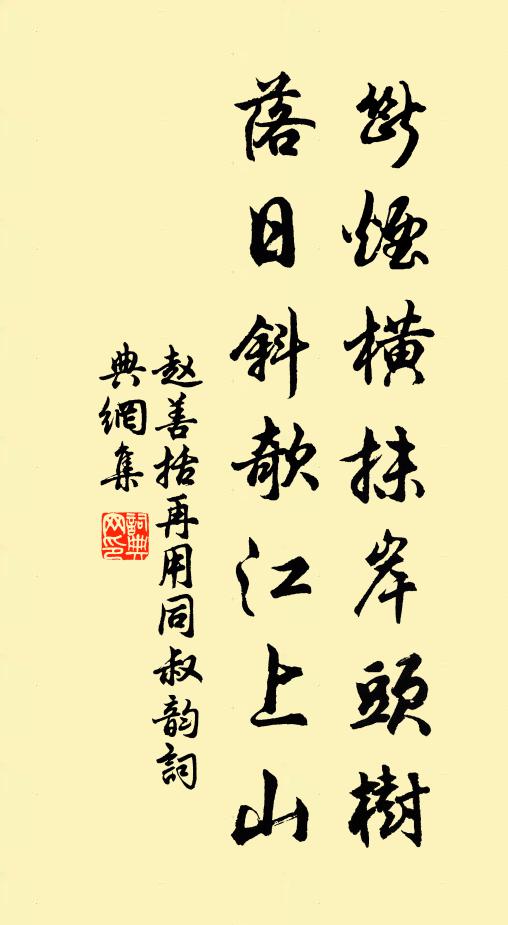 斷煙橫抹岸頭樹
落日斜欹江上山
赵善括再用同叔韵詞
典網集
詞典
网印